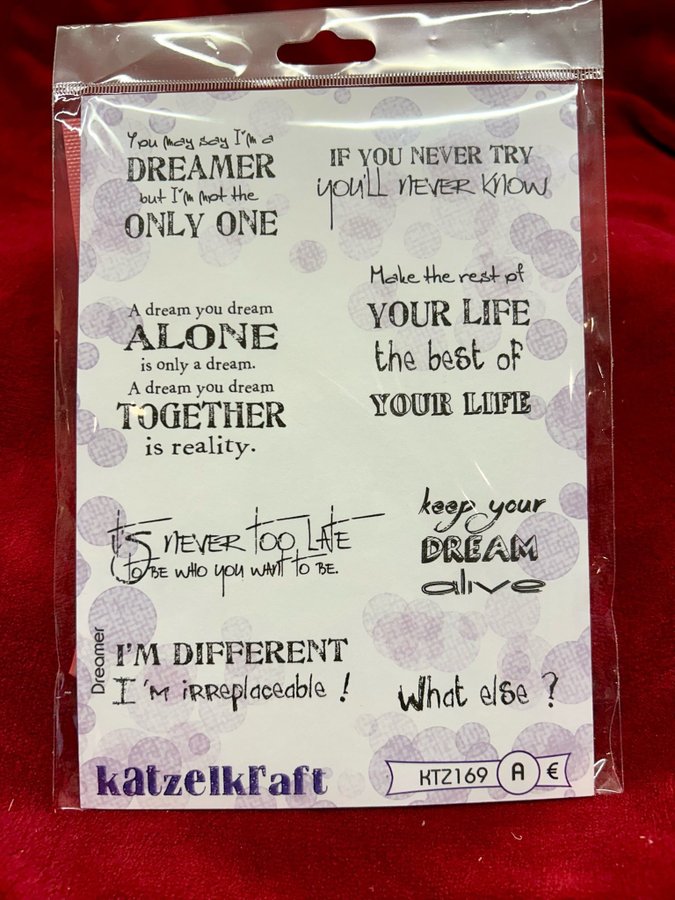 You may say I'm a
DREAMER
but I'm not the
ONLY ONE
IF YOU NEVER TRY
you'll never know
A dream you dream
ALONE
is only a dream.
A dream you dream
TOGETHER
is reality.
Make the rest of
YOUR LIFE
the best of
YOUR LIFE
it's NEVER TOO LATE
TO BE WHO YOU WANT TO BE.
keep your
DREAM
alive
Dreamer
I'M DIFFERENT
I'M irreplaceable !
What else ?
katzelkraft
KTZ169 A €